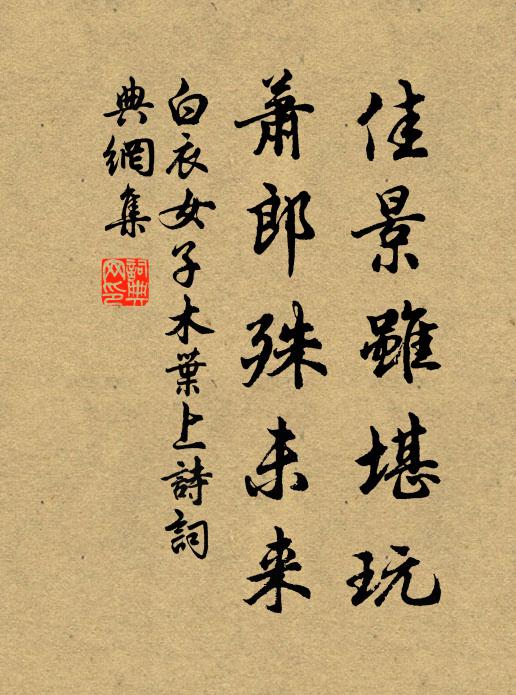 佳景雖堪玩
蕭郎殊未来
白衣女子木葉上詩詞
典網集
詞典
网印